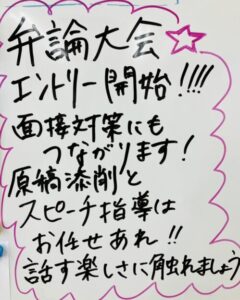 弁論大会
エントリー開始!!!!
面接対策にも
つながります!
原稿添削と
スピーチ指導は
お任せあれ!!
話す楽しさに触れましょう